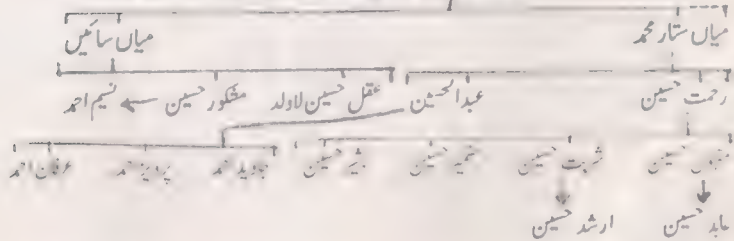 میاں ستار محمد میاں سائیں
رحمت حسین عبدالحسین عقل حسین لاولد مشکور حسین نسیم احمد
حسین شربت حسین ضمیر حسین بشیر حسین جاوید احمد پرویز احمد عرفان احمد
عابد حسین ارشد حسین